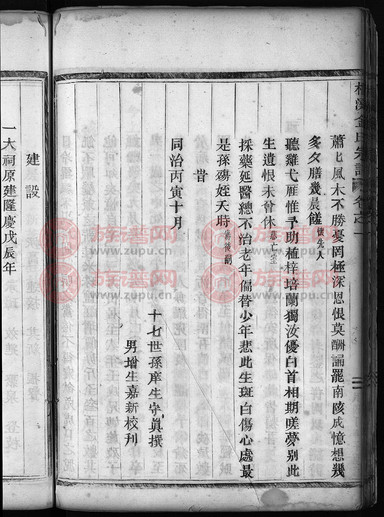 蕭〻風木不勝憂罔極深恩恨莫酬誦罷南陔成憶想幾
多夕膳幾晨饈懷先人
聽雞弋雁惟予助植梓培蘭獨汝優白首相期嗟夢別此
生遺恨未曾休慕亡室
採藥延醫總不治老年偏替少年悲此生斑白傷心處最
是孫殤姪夭時
旹
同治丙寅十月
十七世孫庠生守眞撰
男增生嘉新校刊
建設
一大祠原建隆慶戊辰年
族譜网
www.zupu.cn